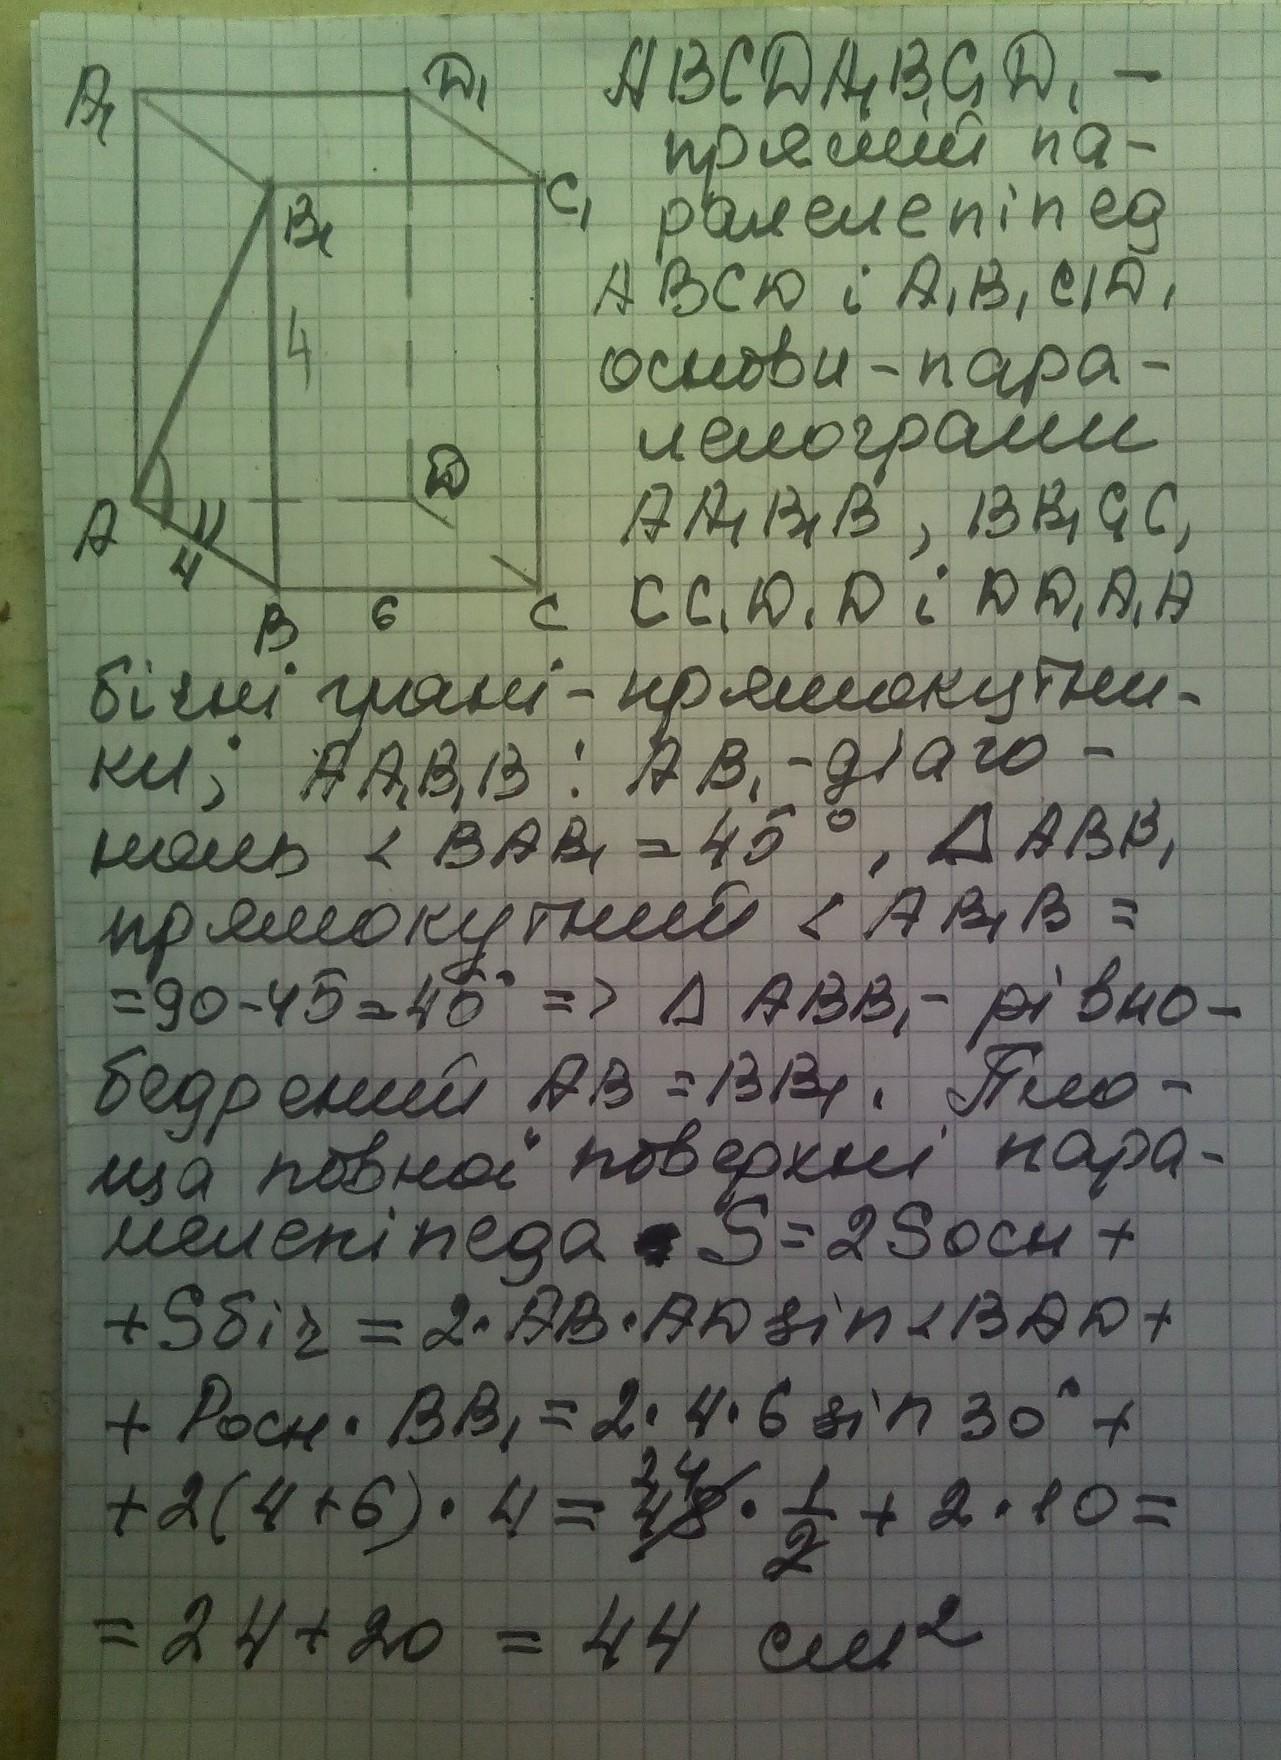 A₁
D₁
B₁
C₁
4
A
D
4
B
6
C
ABCDA₁B₁C₁D₁ –
прямий па-
ралелепіпед
ABCD і A₁B₁C₁D₁
основи - пара-
лелограми
AA₁B₁B, BB₁C₁C,
CC₁D₁D і DD₁A₁A
бічні грані - прямокутни-
ки; AA₁B₁B : AB₁ - діаго-
наль < BAB₁ = 45°, Δ ABB₁
прямокутний < AB₁B =
= 90 - 45 = 45° => Δ ABB₁ - рівно-
бедрений AB = BB₁. Пло-
ща повної поверхні пара-
лелепіпеда S = 2Sосн +
+ Sбіч = 2·AB·AD sin < BAD +
+ Pосн · BB₁ = 2·4·6 sin 30° +
24
+ 2(4+6)·4 = 48 · 1/2 + 2·10 =
= 24 + 20 = 44 см²